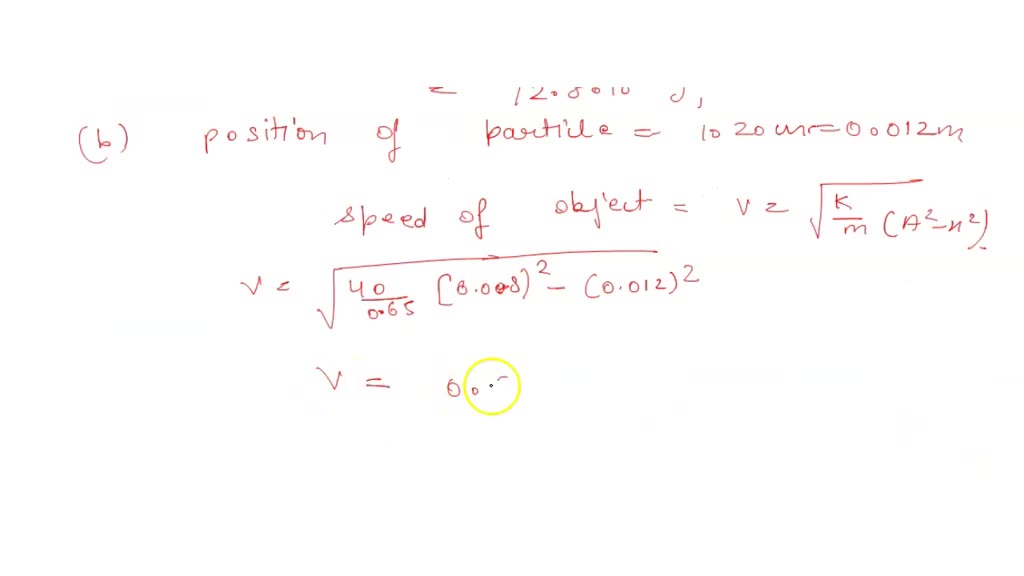 (b) position of particle = 1.20 cm = 0.012m
speed of object = v = √ K/m (A²-x²)
v = √ 40/0.65 [0.008)² - (0.012)²
v = 0.